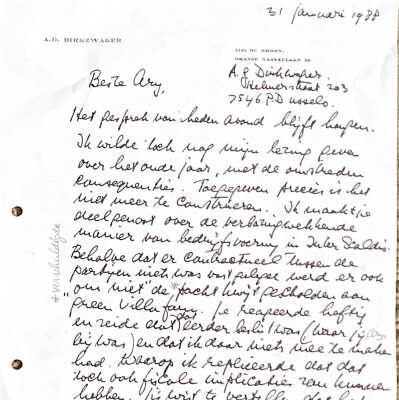 31 januari 1988
A.D. DIRKZWAGER
ORANJE NASSAULAAN
A.P. Dirkzwager
Helmerstraat 203
7546 PD
Beste Ary,
Het gesprek van heden avond blijft hangen.
Ik wilde toch nog mijn lezing geven
over het oude jaar, met de omstreden
consequenties. Toegegeven precies is het
niet meer te construeren. Ik maakte je
deelgenoot over de verbazingwekkende
manier van bedrijfsvoering in Inter Scaldis.
Behalve dat er contractueel tussen de
partijen niets was vastgelegd werd er ook
"om niet" de * pacht kwijtgescholden aan
* verschuldigde
green Villa Je reageerde heftig
en zeide dat eerder beslist was (waar jij
bij was) en dat ik daar niets mee te maken
had. Waarop ik repliceerde dat dat
toch ook fiscale implicaties zou kunnen
hebben. Jij wist te vertellen dat het